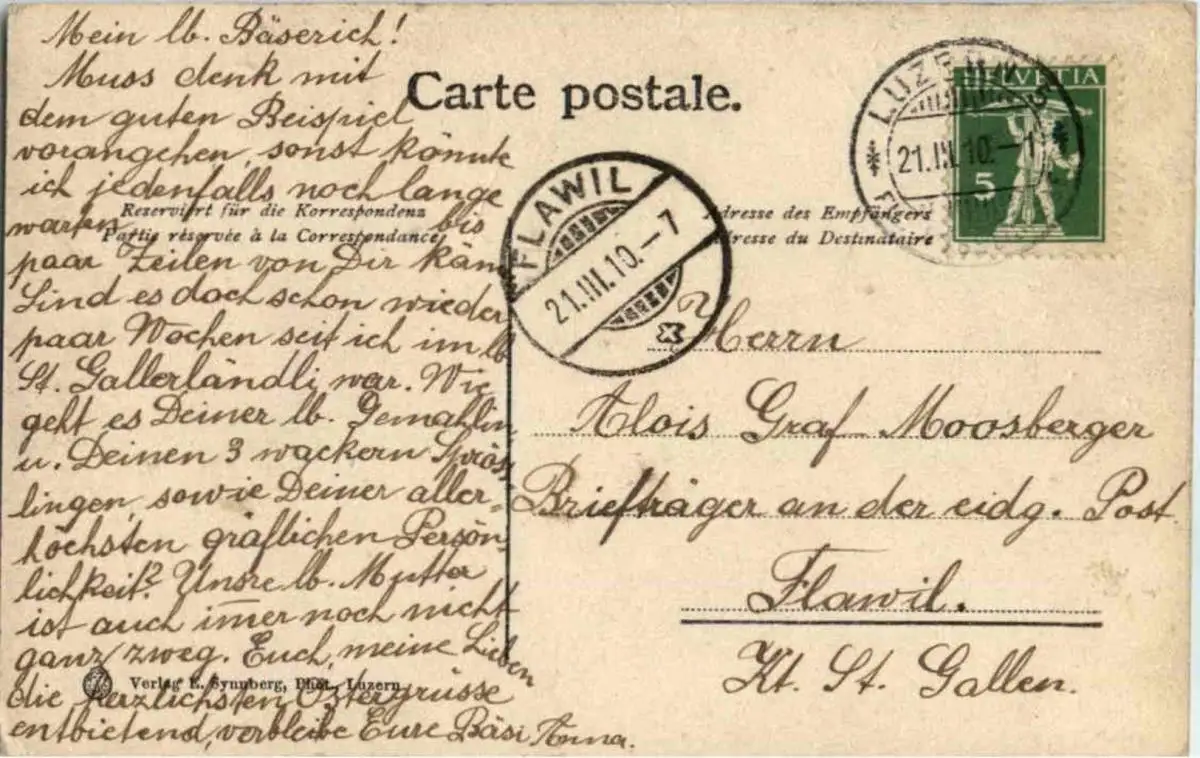 Mein lb. Bäserich!
Muss denk mit
dem guten Beispiel
vorangehen, sonst könnte
ich jedenfalls noch lange
warten bis
paar Zeilen von Dir käm
Sind es doch schon wieder
paar Wochen seit ich im lb
St. Gallerländli war. Wie
geht es Deiner lb. Gemahlin
u. Deinen 3 wackern Spröss
lingen, sowie Deiner aller-
höchsten gräflichen Persön-
lichkeit? Unsre lb. Mutter
ist auch im̄er noch nicht
ganz zweg. Euch, meine Lieben
die herzlichsten Ostergrüsse
entbietend, verbleibe Eure Bäsi Anna.
Carte postale.
Reserviert für die Korrespondenz
Partie réservée à la Correspondance
Adresse des Empfängers
Adresse du Destinataire
HELVETIA
5
LUZERN 5
21.III.10.–1
FLAWIL
21.III.10.–7
Herrn
Alois Graf Moosberger
Briefträger an der eidg. Post
Flawil.
Kt. St. Gallen.
Verlag E. Synnberg, Phot., Luzern